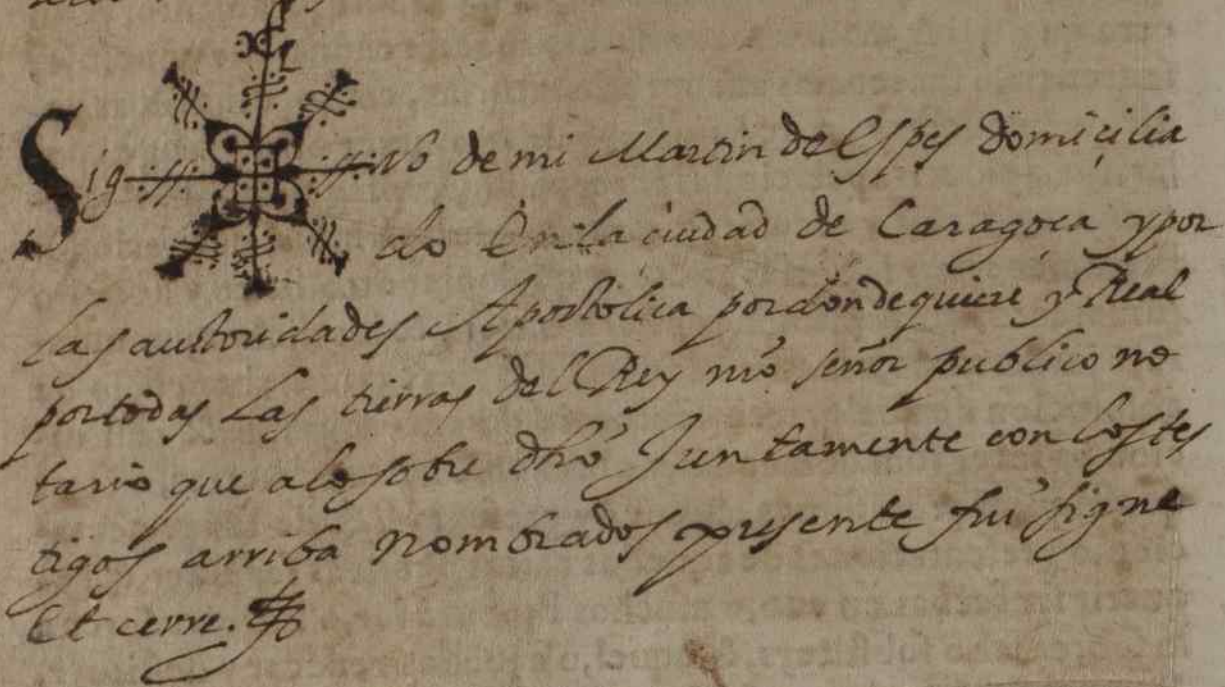 Sig no de mi Martin del Espes domicilia
do En la ciudad de Caragoça y por
las auctoridades Apostolica por dondequiere y Real
por todas Las tierras del Rey nrõ señor publico no
tario que a lo sobre dhõ Juntamente con los tes
tigos arriba nombrados presente fui signe
Et cerre.